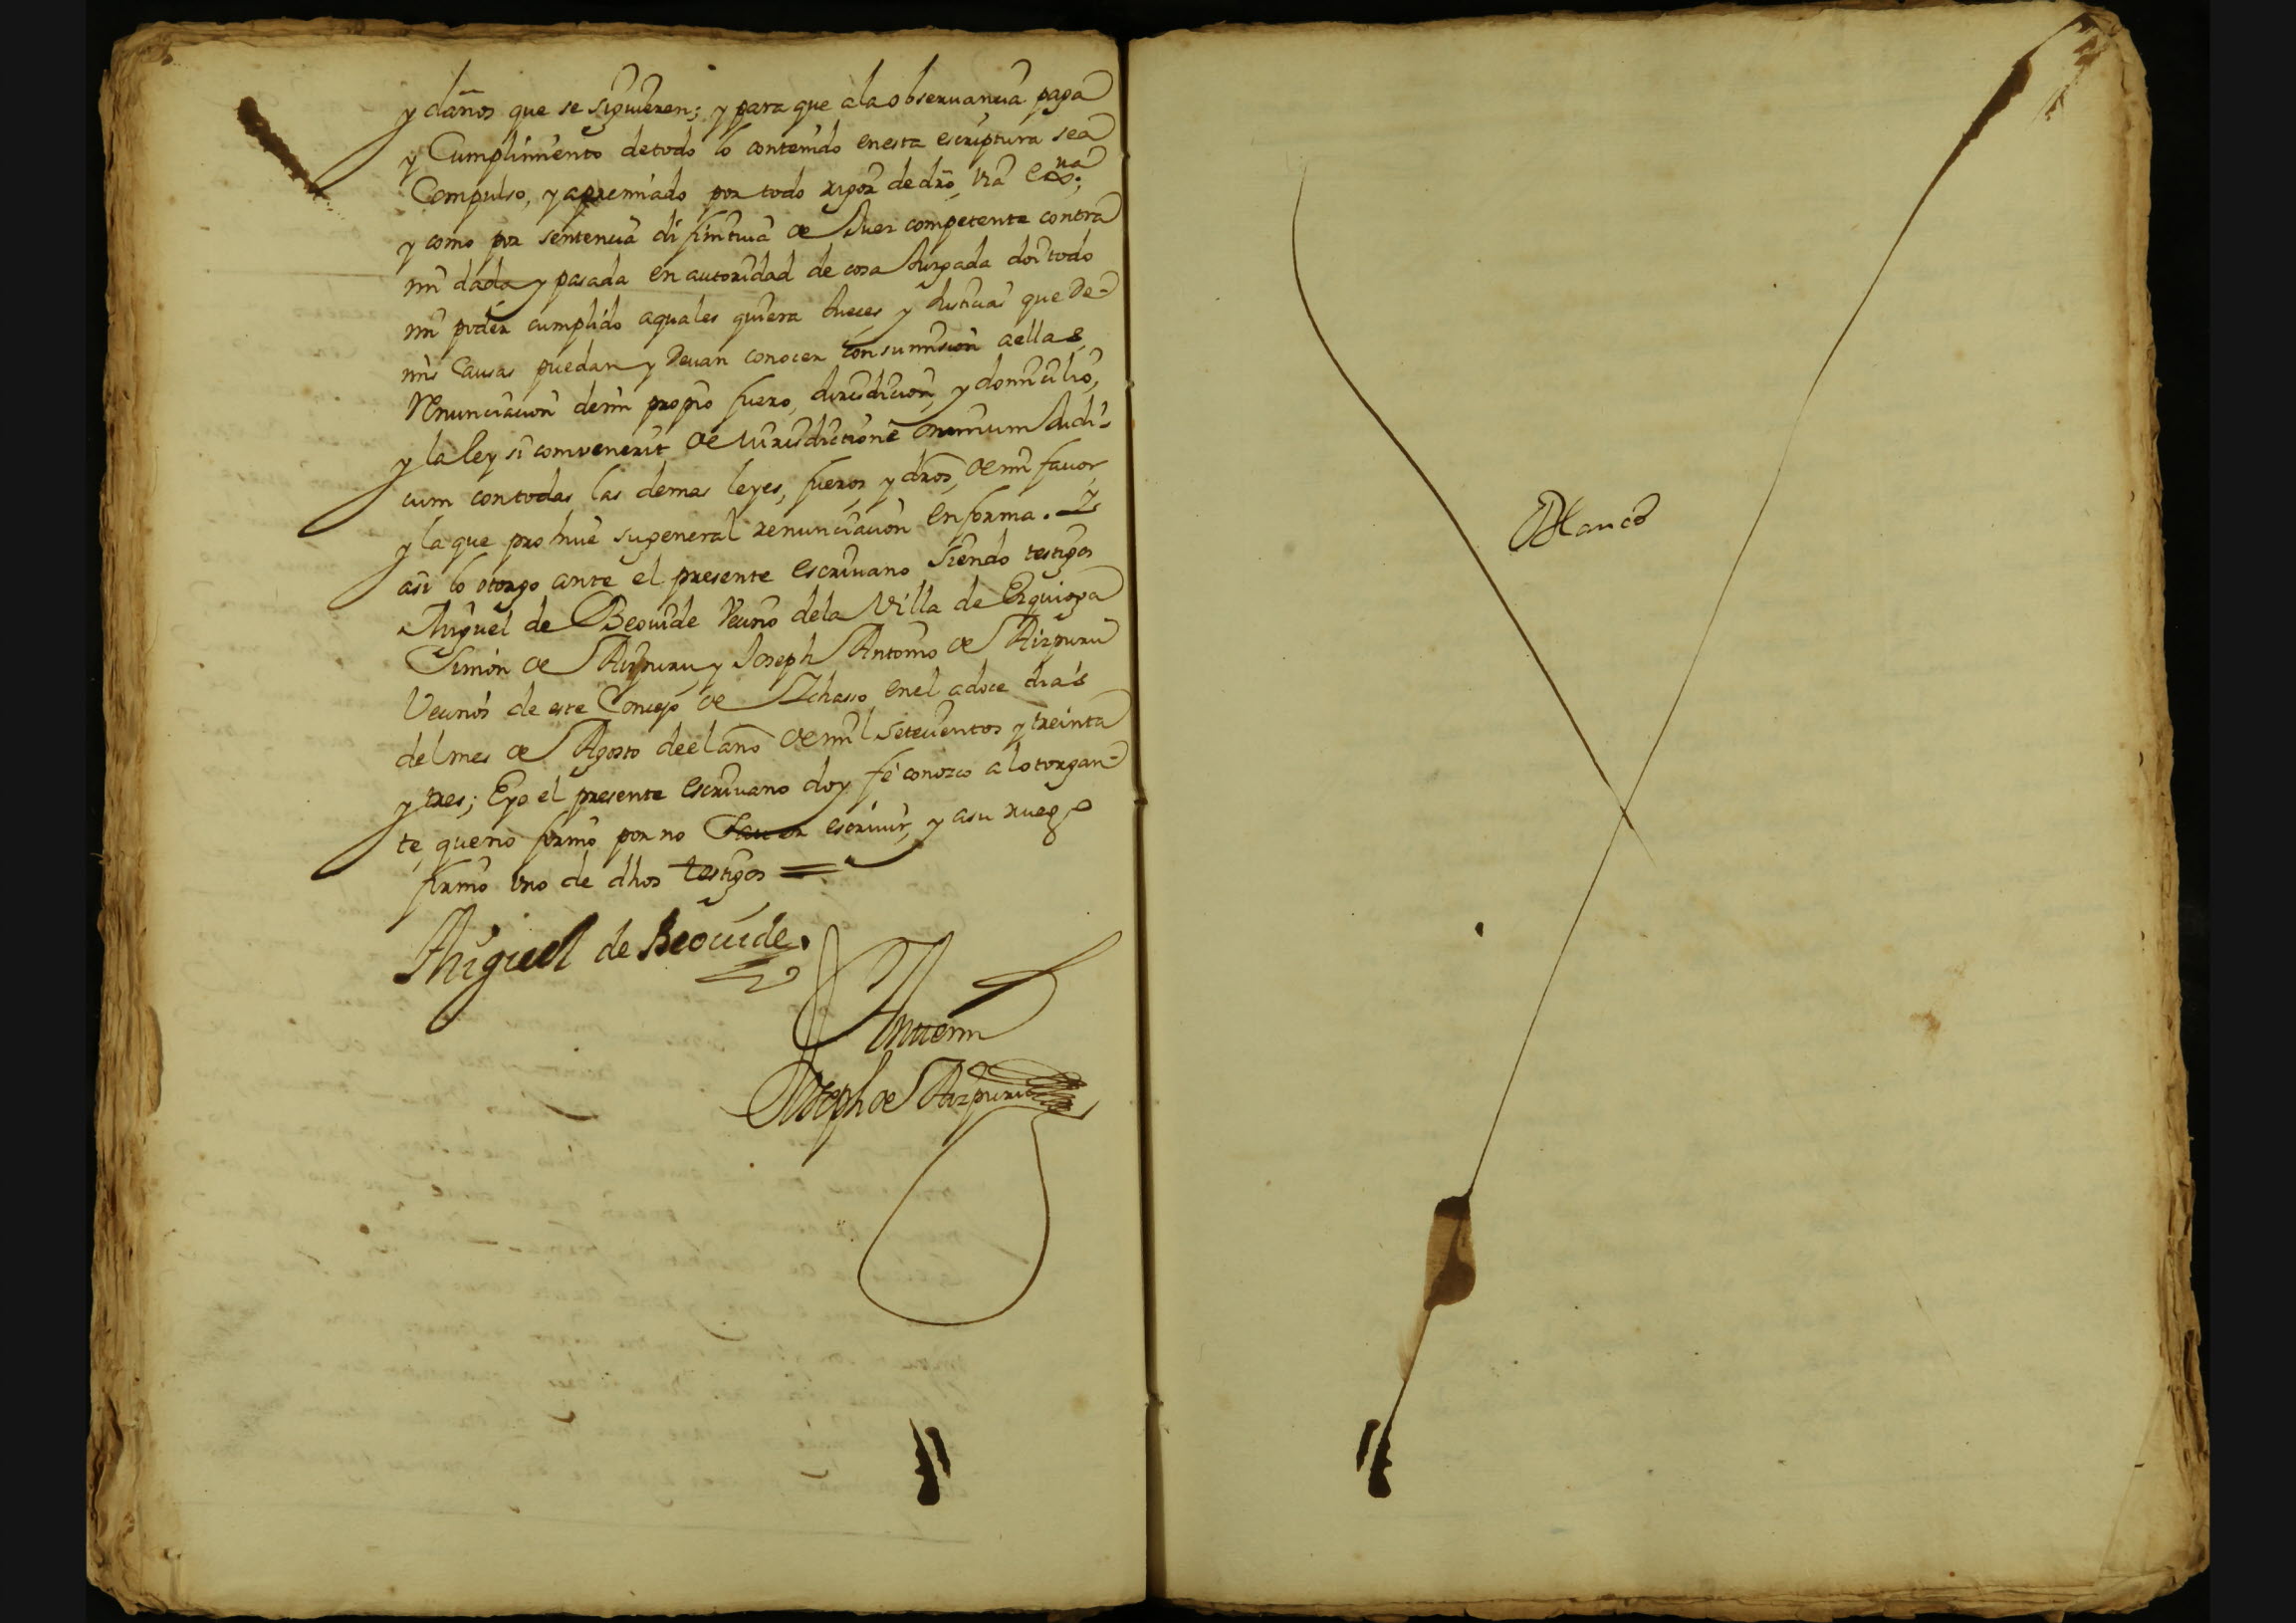 y daños que se siguieren; y para que ala obseruancia paga
y Cumplimiento detodo lo contenido enesta escriptura sea
Compulso, y apremiado por todo rigor de dro, via exᵃ;
y como por sentencia difinitiua de Juez competente contra
mi dada y pasada en autoridad de cosa Juzgada doi todo
mi poder cumplido aquales quiera Jueces y Justicias que de
mis Causas puedan y Deuan conocer con sumision aellas,
Renunciacion demi propio fuero, Jurisdicion, y domicilio,
y la ley si comvenerit de iurisdictione omnium Judi-
cum contodas las demas leyes, fueros y dros, de mi fauor,
y la que prohiue sugeneral renunciacion enforma. Y
asi lo otorgo ante el presente escriuano Siendo testigos
Miguel de Beouide Vecino dela Villa de Ezquioga
Simon de Aizpuru y Joseph Antonio de Aizpuru
Vecinos de este Concejo de Ichasso enel adoce dias
delmes de Agosto deelaño de mil setecientos y treinta
y tres; Eyo el presente escriuano doy fé conozco alotorgan-
te queno firmó por no Sauer escriuir, y asu ruego
firmó vno de dhos testigos =
Miguel de Beouide.
Antemi
Joseph de Aizpuru
Blanco